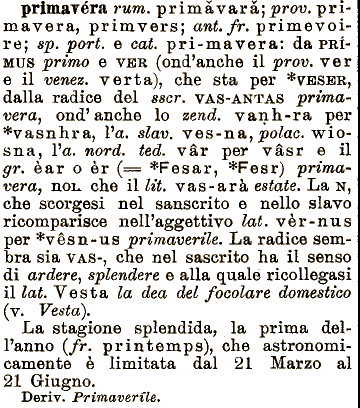 primavéra rum. primăvară; prov. pri-
mavera, primvers; ant. fr. primevoi-
re; sp. port. e cat. pri-mavera: da PRÍ-
MUS primo e VER (ond'anche il prov. ver
e il venez. verta), che sta per *VESER,
dalla radice del sscr. VAS-ANTAS prima-
vera, ond'anche lo zend. vaṇh-ra per
*vasnhra, l'a. slav. ves-na, polac. wio-
sna, l'a. nord. ted. vâr per vâsr e il
gr. èar o èr (= *Fesar, *Fesr) prima-
vera, nol che il lit. vas-arà estate. La N,
che scorgesi nel sanscrito e nello slavo
ricomparisce nell'aggettivo lat. vèr-nus
per *vêsn-us primaverile. La radice sem-
bra sia VAS-, che nel sascrito ha il senso
di ardere, splendere e alla quale ricollegasi
il lat. Vesta la dea del focolare domestico
(v. Vesta).
La stagione splendida, la prima del-
l'anno (fr. printemps), che astronomi-
camente è limitata dal 21 Marzo al
21 Giugno.
Deriv. Primaverīle.